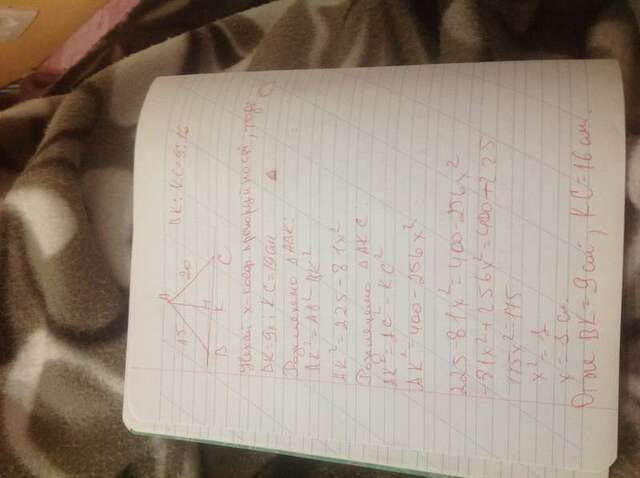 A
15
20
BK:KC=9:16
B
K
C
Нехай x-коеф. пропорційності, тоді
BK=9x; KC=16x
Розглянемо △ABK:
AK²=AB²-BK²
AK²=225-81x²
Розглянемо △AKC
AK²=AC²-KC²
AK²=400-256x²
225-81x²=400-256x²
-81x²+256x²=400-225
175x²=175
x²=1
x=1 см.
Отже BK=9см; KC=16см.